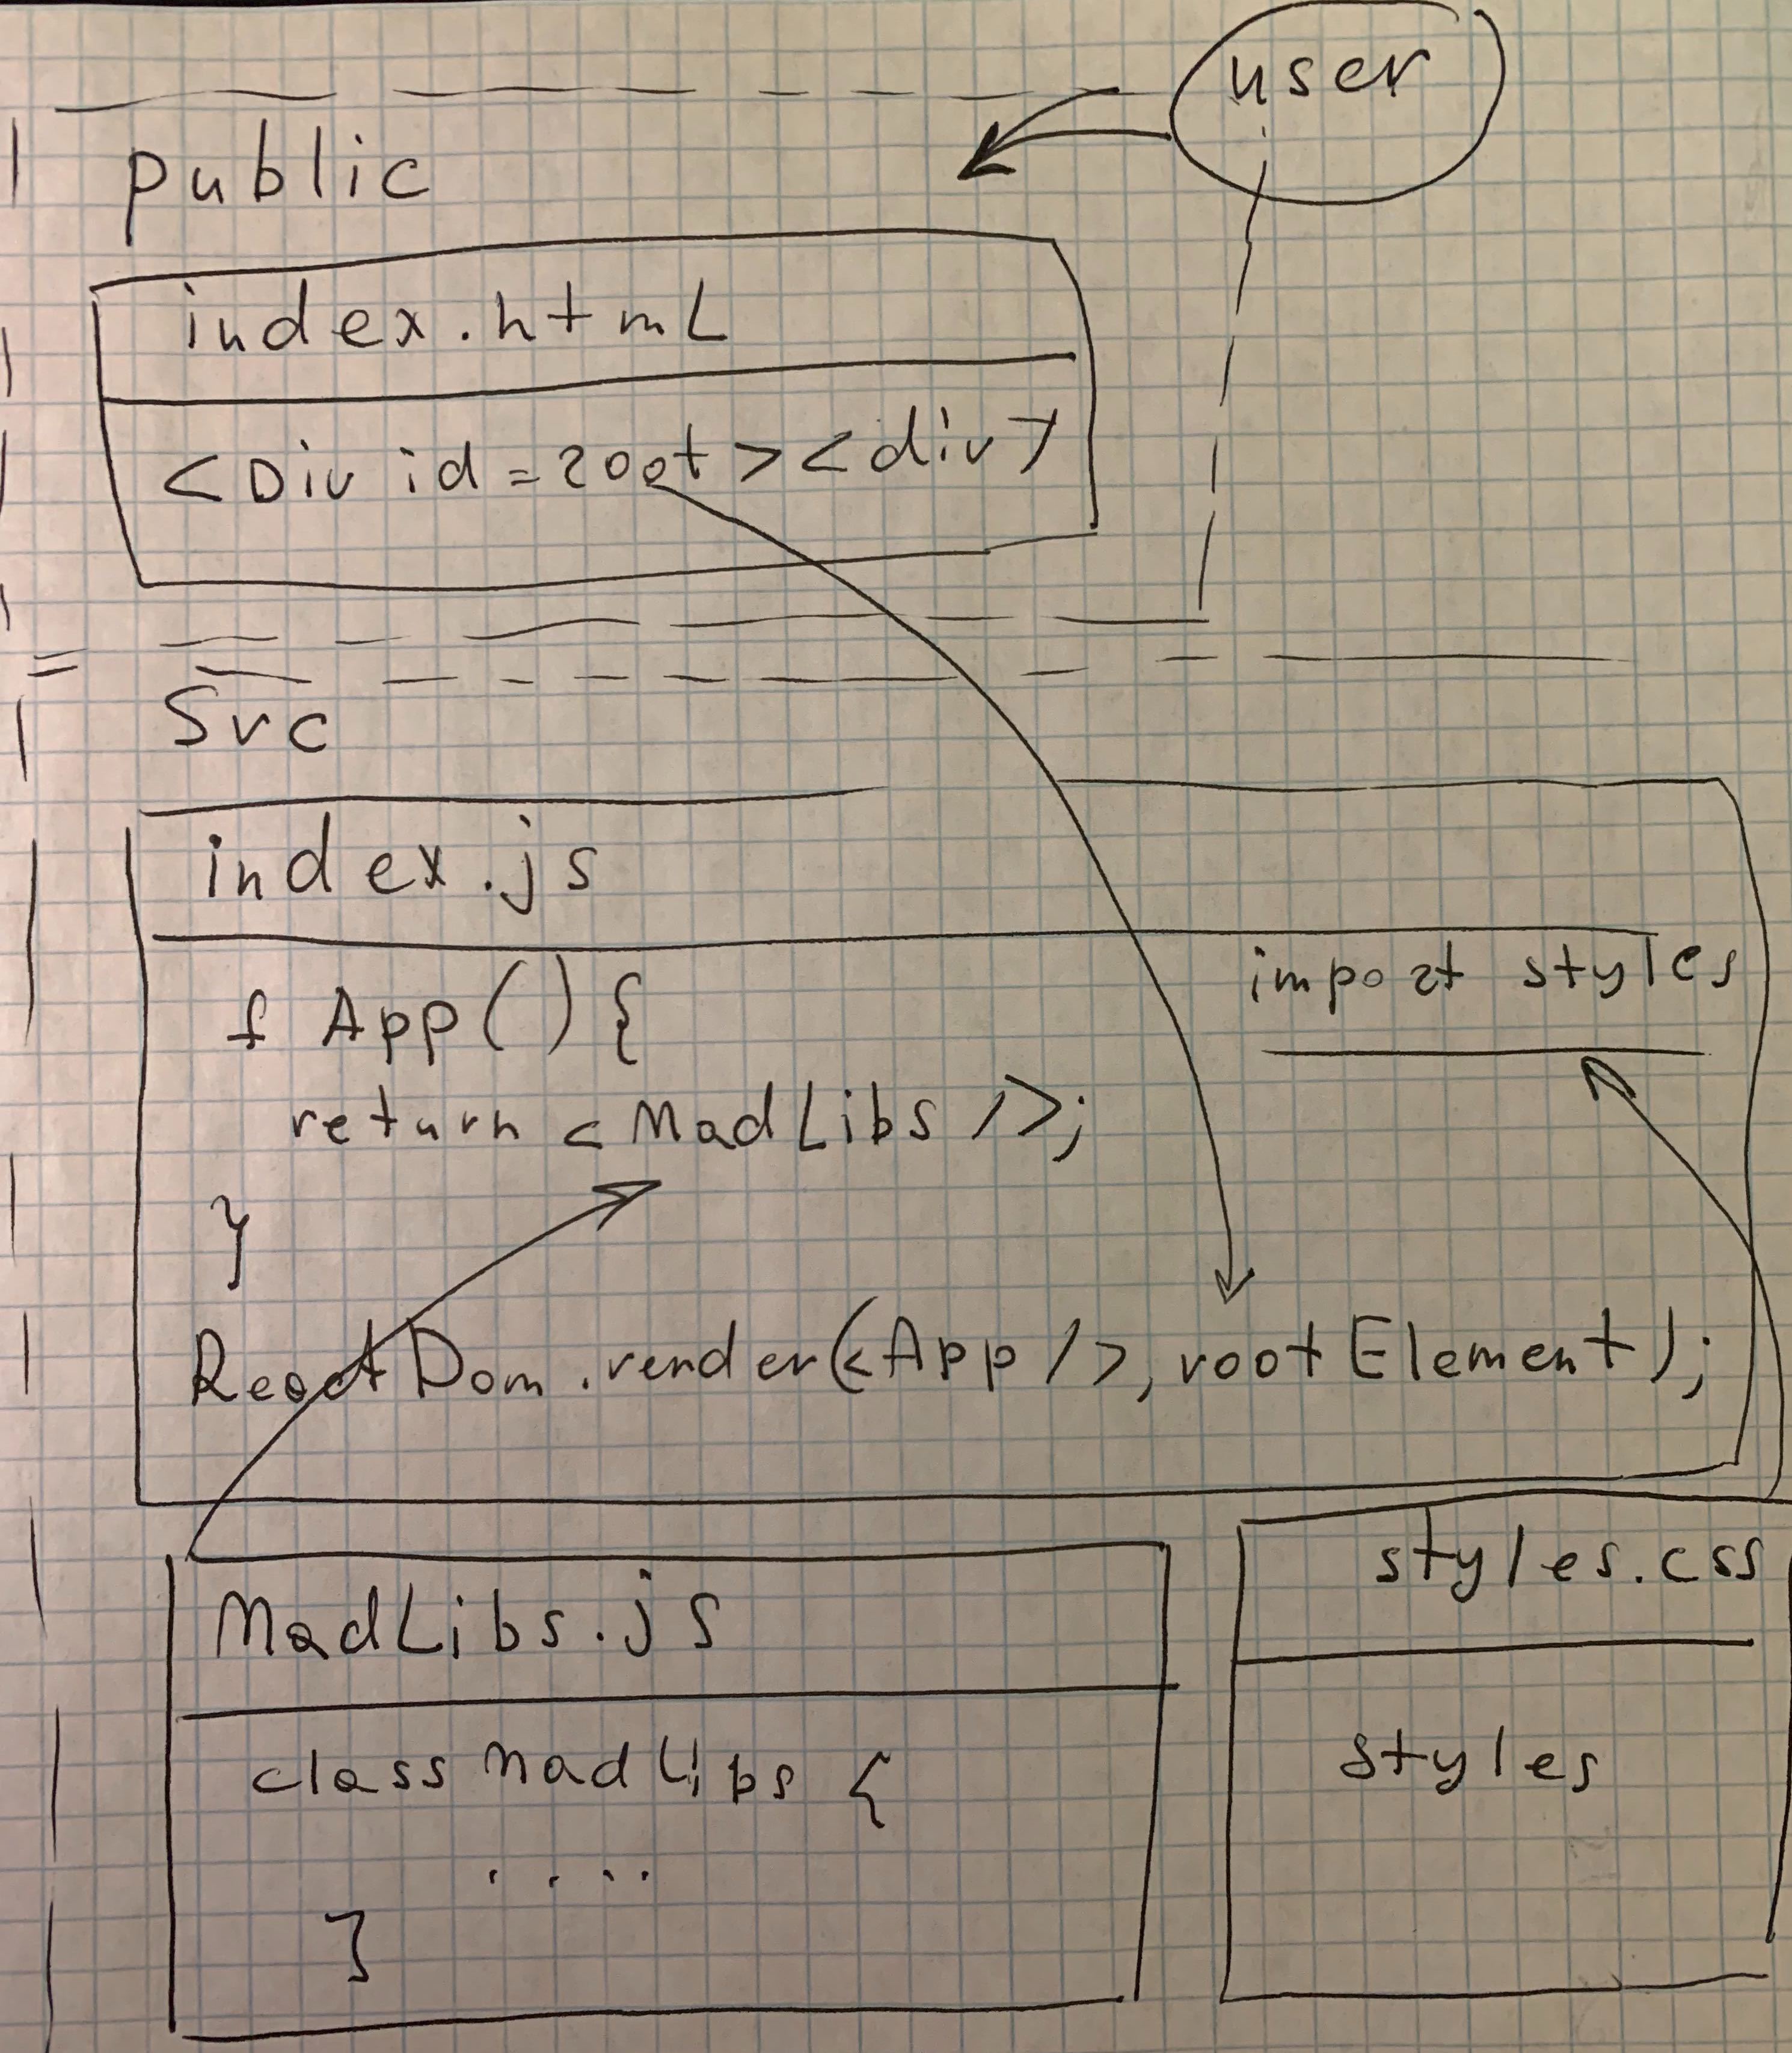 user
public
index.html
<Div id=root><div>
Src
index.js
import styles
f App(){
return <MadLibs />;
}
ReactDom.render(<App />, rootElement);
MadLibs.js
class MadLibs {
....
}
styles.css
styles